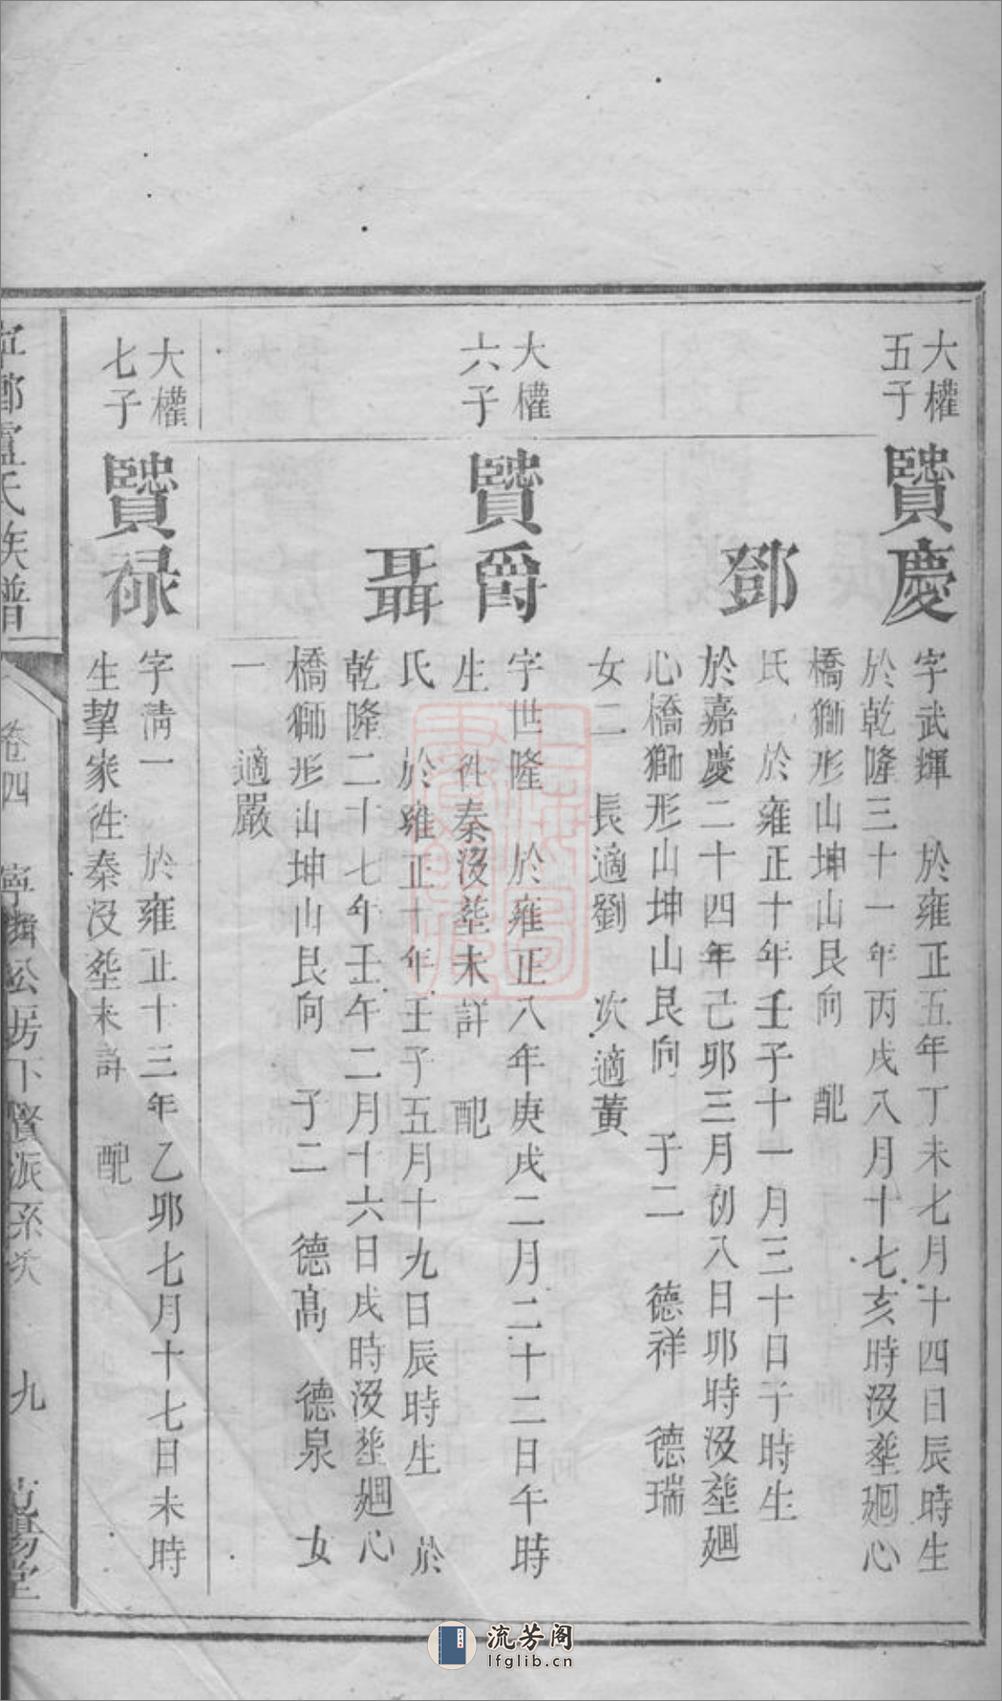 大權
五子
贒慶
字武輝 於雍正五年丁未七月十四日辰時生
於乾隆三十一年丙戌八月十七亥時沒塟廻心
橋獅形山坤山艮向 配
鄧
氏 於雍正十年壬子十一月三十日子時生
於嘉慶二十四年己卯三月初八日卯時沒塟廻
心橋獅形山坤山艮向 子二 德祥 德瑞
女二 長適劉 次適黃
大權
六子
贒爵
字世隆 於雍正八年庚戌二月二十二日午時
生 徃秦沒塟未詳 配
聶
氏 於雍正十年壬子五月十九日辰時生 於
乾隆二十七年壬午二月十六日戌時沒塟廻心
橋獅形山坤山艮向 子二 德高 德泉 女
一 適嚴
大權
七子
贒禄
字清一 於雍正十三年乙卯七月十七日未時
生挈家徃秦沒塟未詳 配
鄉盧氏族譜
卷四
房下贒派系次
九
堂
流芳阁
lfglib.cn